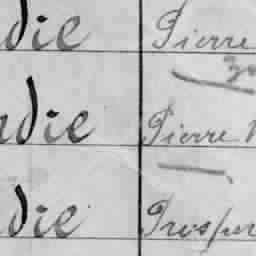 die Pierre
die Pierre
die Prosper